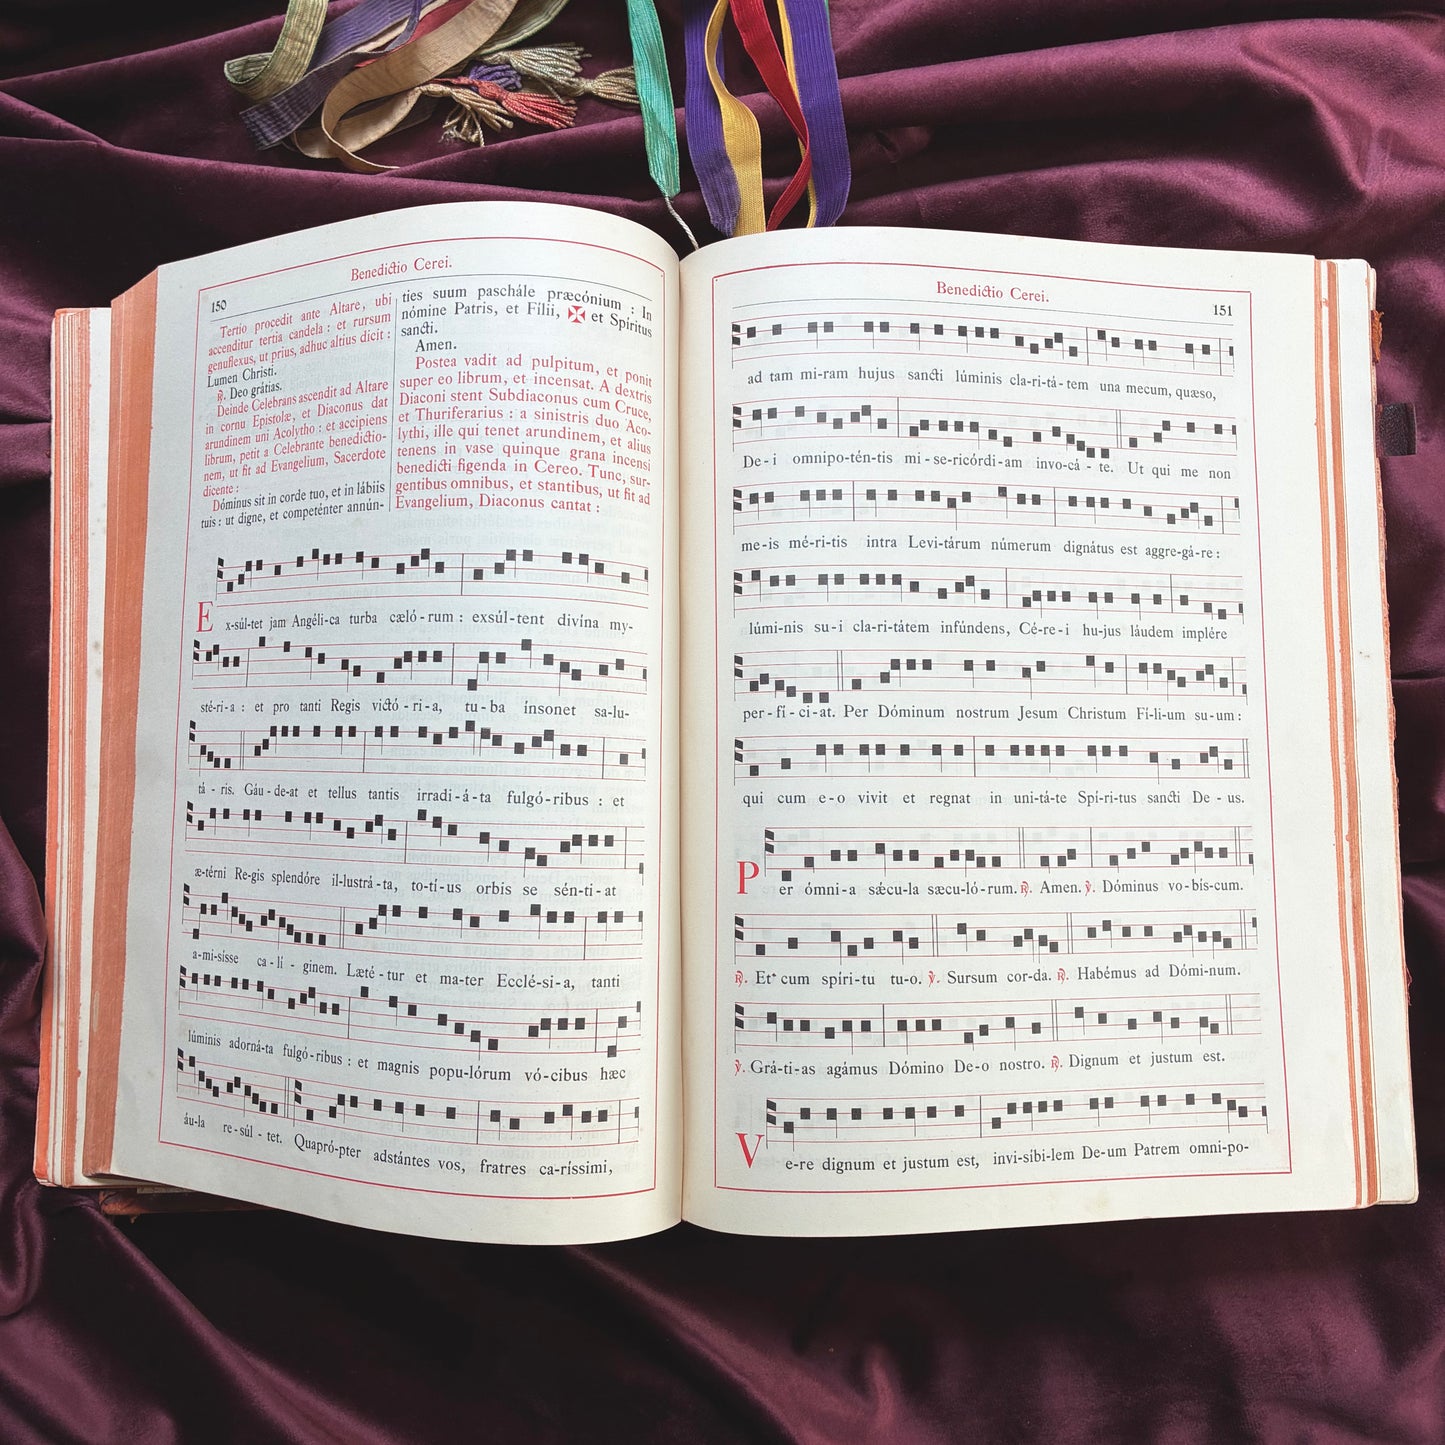 150
Benedictio Cerei.
Tertio procedit ante Altare, ubi
accenditur tertia candela : et rursum
genuflexus, ut prius, adhuc altius dicit :
Lumen Christi.
℟. Deo grátias.
Deinde Celebrans ascendit ad Altare
in cornu Epistolæ, et Diaconus dat
arundinem uni Acolytho : et accipiens
librum, petit a Celebrante benedictio-
nem, ut fit ad Evangelium, Sacerdote
dicente :
Dóminus sit in corde tuo, et in lábiis
tuis : ut digne, et competénter annún-
ties suum paschále præcónium : In
nómine Patris, et Fílii, ✠ et Spíritus
sancti.
Amen.
Postea vadit ad pulpitum, et ponit
super eo librum, et incensat. A dextris
Diaconi stent Subdiaconus cum Cruce,
et Thuriferarius : a sinistris duo Aco-
lythi, ille qui tenet arundinem, et alius
tenens in vase quinque grana incensi
benedicti figenda in Cereo. Tunc, sur-
gentibus omnibus, et stantibus, ut fit ad
Evangelium, Diaconus cantat :
Ex-súl-tet jam Angéli-ca turba cæló-rum : exsúl-tent divína my-
sté-ri-a : et pro tanti Regis victó-ri-a, tu-ba ínsonet sa-lu-
tá-ris. Gáu-de-at et tellus tantis irradi-á-ta fulgó-ribus : et
æ-térni Re-gis splendóre il-lustrá-ta, to-tí-us orbis se sén-ti-at
a-mi-sisse ca-lí-ginem. Læté-tur et ma-ter Ecclé-si-a, tanti
lúminis adorná-ta fulgó-ribus : et magnis popu-lórum vó-cibus hæc
áu-la re-súl-tet. Quapró-pter adstántes vos, fratres ca-ríssimi,
Benedictio Cerei.
151
ad tam mi-ram hujus sancti lúminis cla-ri-tá-tem una mecum, quæso,
De-i omnipo-tén-tis mi-se-ricórdi-am invo-cá-te. Ut qui me non
me-is mé-ri-tis intra Levi-tárum númerum dignátus est aggre-gá-re :
lúmi-nis su-i cla-ri-tátem infúndens, Cé-re-i hu-jus láudem implére
per-fí-ci-at. Per Dóminum nostrum Jesum Christum Fí-li-um su-um :
qui cum e-o vivit et regnat in uni-tá-te Spí-ri-tus sancti De-us.
Per ómni-a sǽcu-la sæcu-ló-rum. ℟. Amen. ℣. Dóminus vo-bís-cum.
℟. Et cum spíri-tu tu-o. ℣. Sursum cor-da. ℟. Habémus ad Dómi-num.
℣. Grá-ti-as agámus Dómino De-o nostro. ℟. Dignum et justum est.
Ve-re dignum et justum est, invi-síbi-lem De-um Patrem omni-po-